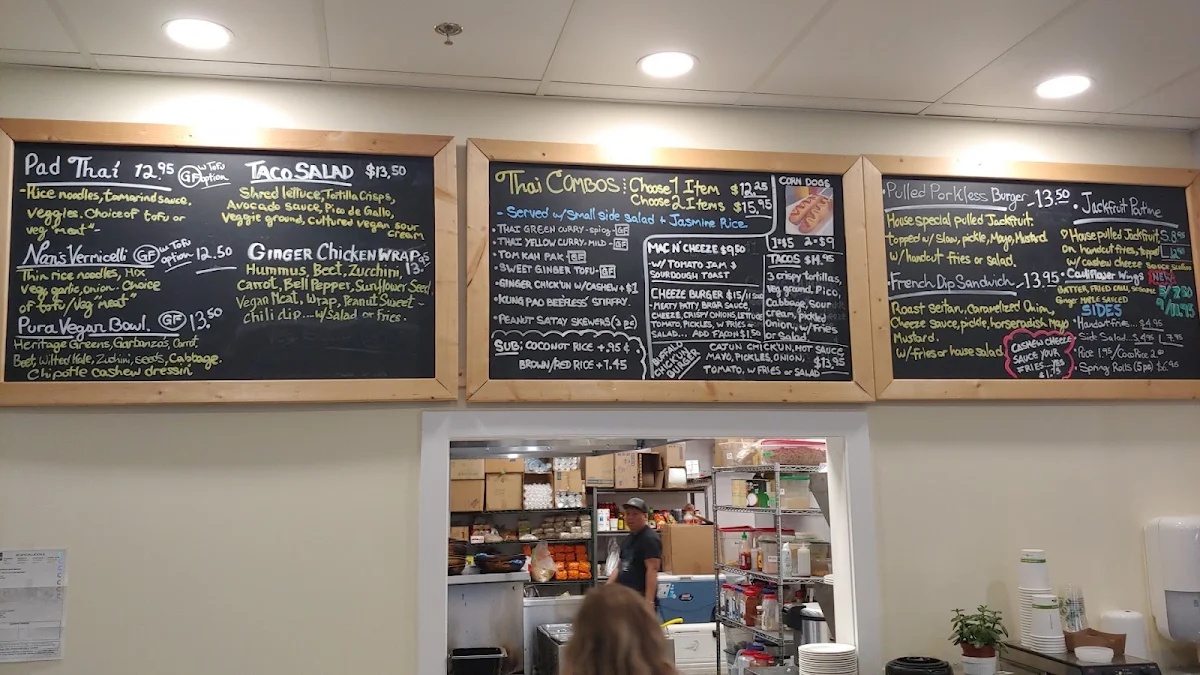 Pad Thai 12.95 GF w Tofu option
-Rice noodles, tamarind sauce,
veggies. Choice of tofu or
veg "meat"-
Nan's Vermicelli GF w Tofu option 12.50
Thin rice noodles, Mix
veg, garlic, onion. Choice
of tofu/veg "meat"
Pura Vegan Bowl. GF 13.50
Heritage Greens, Garbanzos, Carrot
Beet, Wilted Kale, Zuchini, Seeds, Cabbage.
Chipotle cashew dressin'
TACO SALAD $13.50
Shred lettuce, Tortilla Crisps,
Avocado Sauce, Pico de Gallo,
veggie ground, cultured vegan sour
cream
GINGER CHICKEN WRAP
Hummus, Beet, Zucchini,
Carrot, Bell Pepper, Sunflower Seed,
Vegan Meat, Wrap, Peanut Sweet-
Chili dip...w/Salad or fries.
Thai COMBOS: Choose 1 Item $12.25
Choose 2 Items $15.95
- Served w/Small side salad + Jasmine Rice
• THAI GREEN CURRY-spicy-GF
• THAI YELLOW CURRY-MILD-GF
• TOM KAH PAK-GF
• SWEET GINGER TOFU-GF
• GINGER CHICK'UN w/CASHEW +$1
• KUNG PAO BEEFLESS' STIRFRY.
• PEANUT SATAY SKEWERS(2 pc)
SUB: COCONUT RICE +.95¢
BROWN/RED RICE +1.45
CORN DOGS
1=$5 2=$9
MAC N' CHEEZE $9.50
-W/ TOMATO JAM &
SOURDOUGH TOAST
CHEEZE BURGER $15/11
-MEATY PATTY, BRAVA SAUCE,
CHEEZE, CRISPY ONIONS, LETTUCE
TOMATO, PICKLES, W/ FRIES OR
SALAD... ADD FACON $1.50
TACOS $14.95
3 crispy tortillas,
veg. ground, Pico,
Cabbage, Sour
cream, pickled
Onion, w/fries
or salad
BUFFALO
CHICK'UN
BURGER
CAJUN CHICK'UN, HOT SAUCE
MAYO, PICKLES, ONION, $13.95
TOMATO, W/ FRIES or SALAD
Pulled Porkless Burger -13.50
House special pulled Jackfruit
topped w/Slaw, pickle, Mayo, Mustard
w/handcut fries or salad.
French Dip Sandwich -13.95
Roast seitan, caramelized onion,
Cheeze sauce, pickle, horseradish Mayo
Mustard.
w/fries or house salad
CASHEW CHEEZE
SAUCE YOUR
FRIES...YES
$1.75
• Jackfruit Poutine
House pulled Jackfruit
on handcut fries, topped
w/cashew cheeze sauce
• Cauliflower Wings NEW
BATTER, FRIED CHILI, SESAME
Ginger MAPLE SAUCED
SIDES
• Handcut fries... $4.95
• Side Salad...
• Rice 1.95/Coco Rice
• Spring Rolls (5pc) $6.95